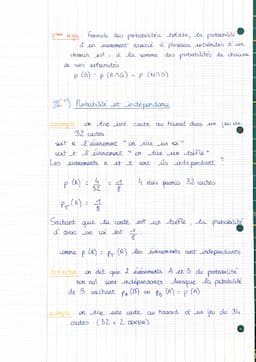 2ème règle Formule des probabilités totales, la probabilité
d'un évènement associé à plusieurs extrémités d'un
chemin est : à la somme des probabilités de chacune
de ces extrémités
p (G) =
III °) Probabilité et indépendance
Exemple on tire une carte au hasard dans un jeu de
32 cartes
soit R l'évènement "on tire un roi"
soit T l'évènement "on tire un trèfle"
Les évènements R et T sont ils indépendant ?
p (R) = 4/32 = 1/8 4 rois parmis 32 cartes
p_T (R) = 1/8
Sachant que la carte est un trèfle, la probabilité
d'avoir un roi est 1/8
comme p (R) = p_T (R) les évènements sont indépendants.
Définition on dit que 2 évènements A et B de probabilité
non nul sont indépendants lorsque la probabilité
de B sachant
Exemple on tire une carte au hasard d'un jeu de 34
cartes (32 + 2 Jokers)